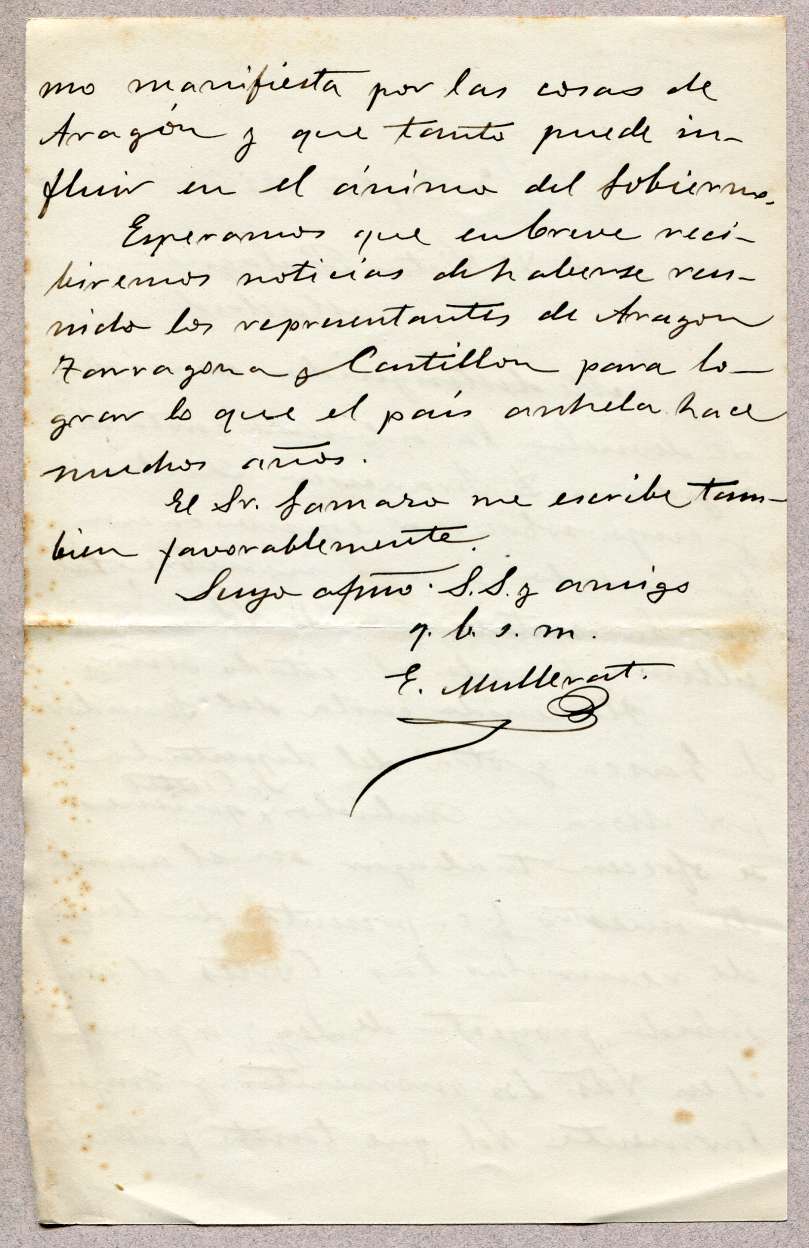 mo manifiesta por las cosas de
Aragón y que tanto puede in-
fluir en el ánimo del Gobierno.
Esperamos que en breve reci-
biremos noticias de haberse reu-
nido los representantes de Aragon
Tarragona y Castillon para lo-
grar lo que el país anhela hace
muchos años.
El Sr. Gamazo me escribe tam-
bien favorablemente.
Suyo afmo. S. S. y amigo
q. b. s. m.
E. Mullerat.